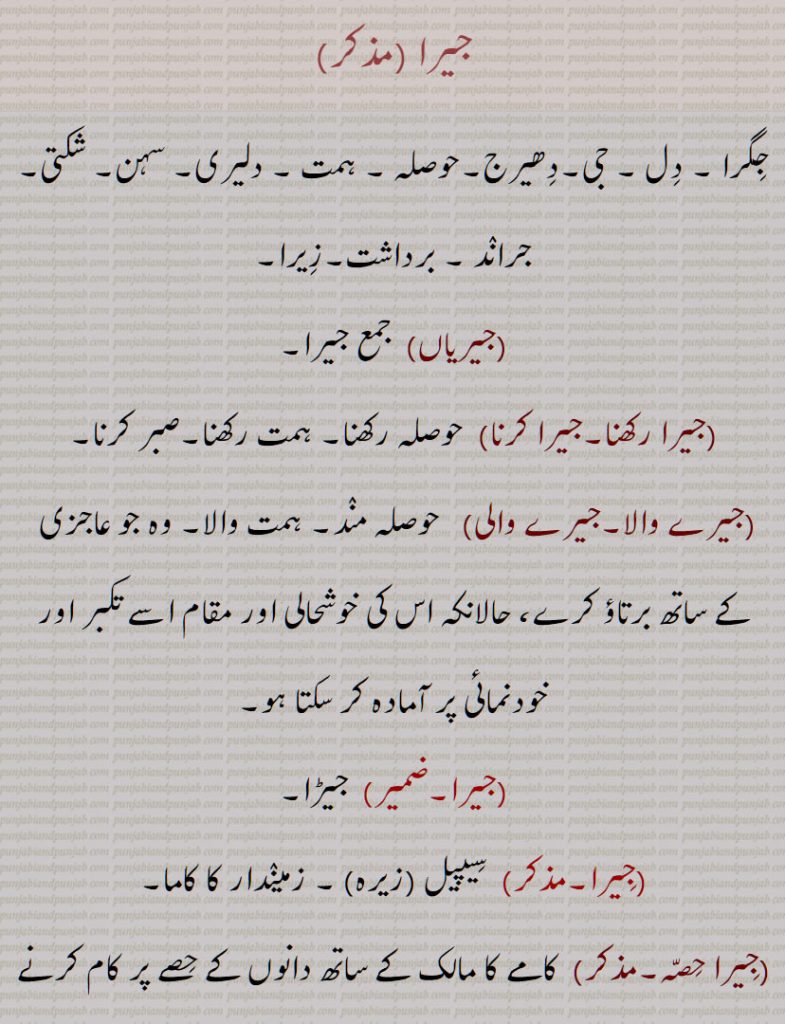 جیرا (مذکر)
جِگرا ۔ دِل ۔ جی۔دِھیرج۔حوصلہ ۔ ہمت ۔ دلیری۔ سہن۔ شکتی۔
جراند ۔ برداشت۔زِیرا۔
(جیریاں) جمع جیرا۔
(جیرا رکھنا۔جیرا کرنا) حوصلہ رکھنا۔ ہمت رکھنا۔صبر کرنا۔
(جیرے والا۔جیرے والی) حوصلہ مند۔ ہمت والا۔ وہ جو عاجزی
کے ساتھ برتاؤ کرے، حالانکہ اس کی خوشحالی اور مقام اسے تکبر اور
خودنمائی پر آمادہ کر سکتا ہو۔
(جیرا۔ضمیر) جیڑا۔
(جِیرا۔مذکر) سِیپیل (زیرہ) ۔ زمیندار کا کاما۔
(جِیرا حِصّہ۔مذکر) کامے کا مالک کے ساتھ دانوں کے حِصے پر کام کرنے